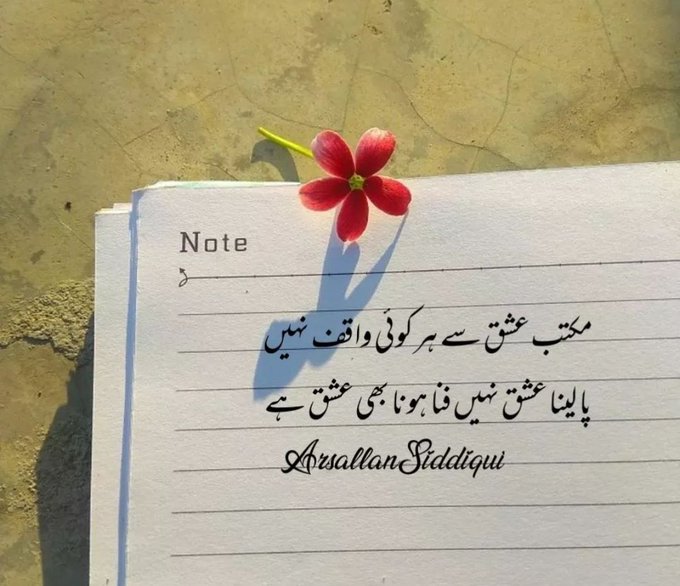 Note
مکتب عشق سے ہر کوئی واقف نہیں
پالینا عشق نہیں فنا ہونا بھی عشق ہے
Arsallan Siddiqui